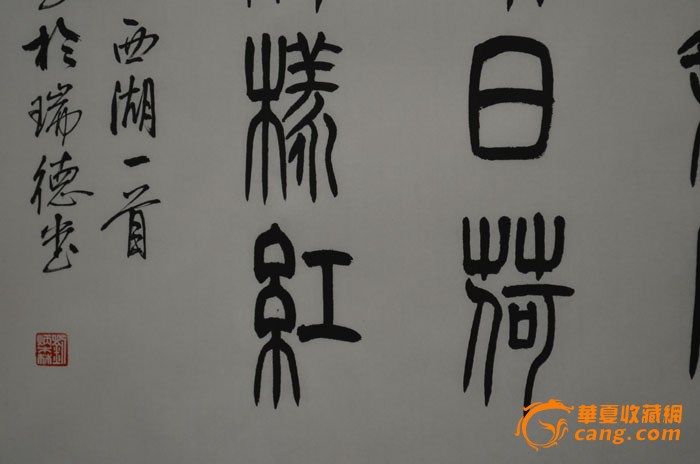 日荷
樣紅
西湖一首
於瑞德堂
劉炳森
華夏收藏網
cang.com